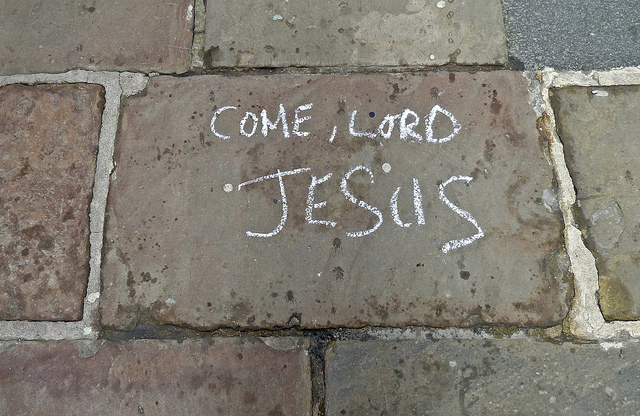 COME, LORD
JESUS